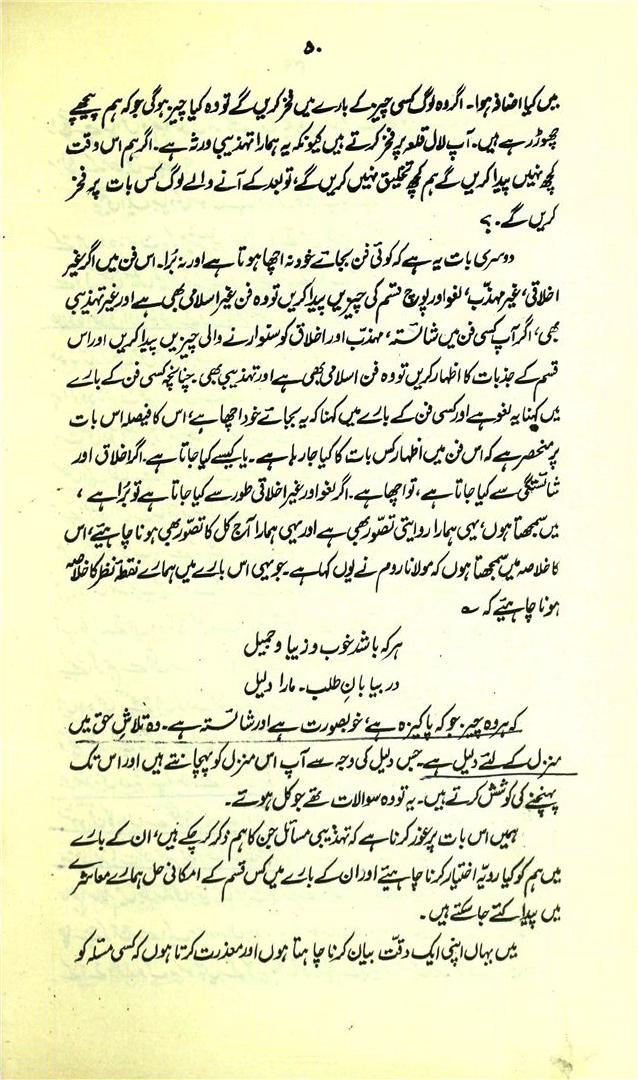 ۵۰
میں کیا اضافہ ہوا۔ اگر وہ لوگ کسی چیز کے بارے میں فخر کریں گے تو وہ کیا چیز ہوگی جو کہ ہم پیچھے
چھوڑ رہے ہیں۔ آپ لال قلعہ پر فخر کرتے ہیں کیونکہ یہ ہمارا تہذیبی ورثہ ہے۔ اگر ہم اس وقت
کچھ نہیں پیدا کریں گے ہم کچھ تخلیق نہیں کریں گے، تو بعد کے آنے والے لوگ کس بات پر فخر
کریں گے۔ ؟
دوسری بات یہ ہے کہ کوئی فن بجائے خود نہ اچھا ہوتا ہے اور نہ بُرا۔ اس فن میں اگر غیر
اخلاقی، غیر مہذّب، لغو اور پوچ قسم کی چیزیں پیدا کریں تو وہ فن غیر اسلامی بھی ہے اور غیر تہذیبی
بھی، اگر آپ کسی فن میں شائستہ، مہذّب اور اخلاق کو سنوارنے والی چیزیں پیدا کریں اور اس
قسم کے جذبات کا اظہار کریں تو وہ فن اسلامی بھی ہے اور تہذیبی بھی۔ چنانچہ کسی فن کے بارے
میں کہنا یہ لغو ہے اور کسی فن کے بارے میں کہنا کہ یہ بجائے خود اچھا ہے، اس کا فیصلہ اس بات
پر منحصر ہے کہ اس فن میں اظہار کس بات کا کیا جا رہا ہے۔ یا کیسے کیا جاتا ہے۔ اگر اخلاق اور
شائستگی سے کیا جاتا ہے، تو اچھا ہے۔ اگر لغو اور غیر اخلاقی طور سے کیا جاتا ہے تو بُرا ہے،
میں سمجھتا ہوں، یہی ہمارا روایتی تصوّر بھی ہے اور یہی ہمارا آج کل کا تصوّر بھی ہونا چاہیئے، اس
کا خلاصہ میں سمجھتا ہوں کہ مولانا روم نے یوں کہا ہے۔ جو یہی اس بارے میں ہمارے نقطۂ نظر کا خلاصہ
ہونا چاہیئے کہ ؎
ہر کہ باشد خوب و زیبا و جمیل
در بیابانِ طلب۔ مارا دلیل
کہ ہر وہ چیز جو کہ پاکیزہ ہے، خوبصورت ہے اور شائستہ ہے۔ وہ تلاشِ حق میں
منزل کے لئے دلیل ہے۔ جس دلیل کی وجہ سے آپ اس منزل کو پہچانتے ہیں اور اس تک
پہنچنے کی کوشش کرتے ہیں۔ یہ تو وہ سوالات تھے جو کل ہوئے۔
ہمیں اس بات پر غور کرنا ہے کہ تہذیبی مسائل جن کا ہم ذکر کر چکے ہیں، ان کے بارے
میں ہم کو کیا رویّہ اختیار کرنا چاہیئے اور ان کے بارے میں کس قسم کے امکانی حل ہمارے معاشرے
میں پیدا کئے جا سکتے ہیں۔
میں یہاں اپنی ایک دقّت بیان کرنا چاہتا ہوں اور معذرت کرتا ہوں کہ کسی مسئلہ کو